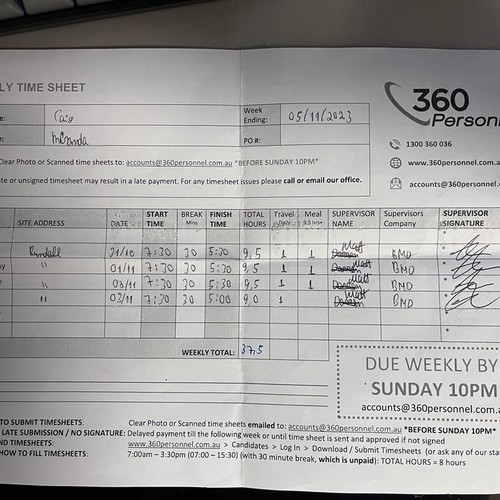 LY TIME SHEET
360
Personn
e: Caio
Week Ending: 05/11/2023
e: Miranda
PO #:
1300 360 036
www.360personnel.c
accounts@360personnel.c
Clear Photo or Scanned time sheets to: accounts@360personnel.com.au *BEFORE SUNDAY 10PM*
te or unsigned timesheet may result in a late payment. For any timesheet issues please call or email our office.
SITE ADDRESS DATE START TIME BREAK Mins FINISH TIME TOTAL HOURS Travel Meal 9.5 hrs+ SUPERVISOR NAME Supervisors Company SUPERVISOR SIGNATURE
31/10 7:30 30 5:30 9,5 1 1 Matt BMD
ay '' 01/11 7:30 30 5:30 9,5 1 1 Matt BMD
'' 7:30 30 5:30 9,5 1 1 Matt BMD
'' 03/11 7:30 30 5:00 9,0 1 Matt BMD
WEEKLY TOTAL: 37,5
DUE WEEKLY BY
SUNDAY 10PM
accounts@360personnel.com.a
TO SUBMIT TIMESHEETS: Clear Photo or Scanned timesheets emailed to: accounts@360personnel.com.au *BEFORE SUNDAY 10PM*
LATE SUBMISSION / NO SIGNATURE: Delayed payment till the following week or until time sheet is sent and approved if not signed
ND TIMESHEETS: www.360personnel.com.au > Candidates > Log In > Download / Submit Timesheets (or ask any of our sta
HOW TO FILL TIMESHEETS: 7:00am – 3:30pm (07:00 – 15:30) (with 30 minute break, which is unpaid): TOTAL HOURS = 8 hours